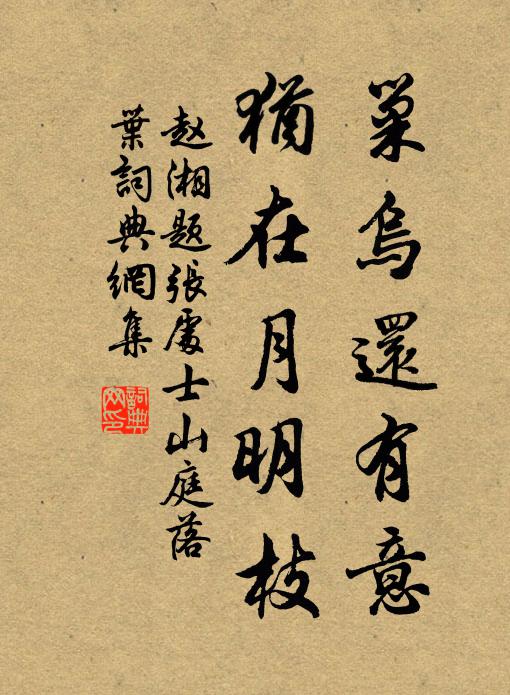 巢烏還有意
猶在月明枝
赵湘题張處士山庭落
葉詞典網集
詞典